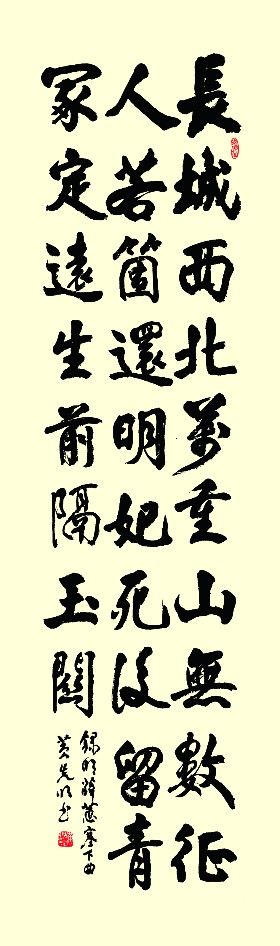 長城西北萬重山無數征
人若箇還明妃死後留青
冢定遠生前隔玉關
錄明薛蕙塞下曲